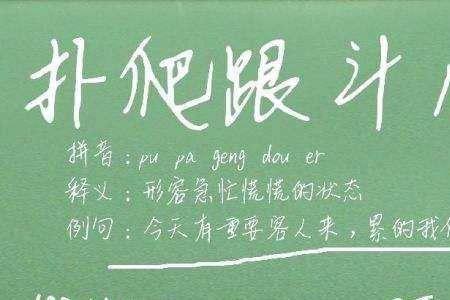 扑爬跟斗
拼音：pu pa geng dou er
释义：形容急忙慌慌的状态
例句：今天有重要客人来，累的我